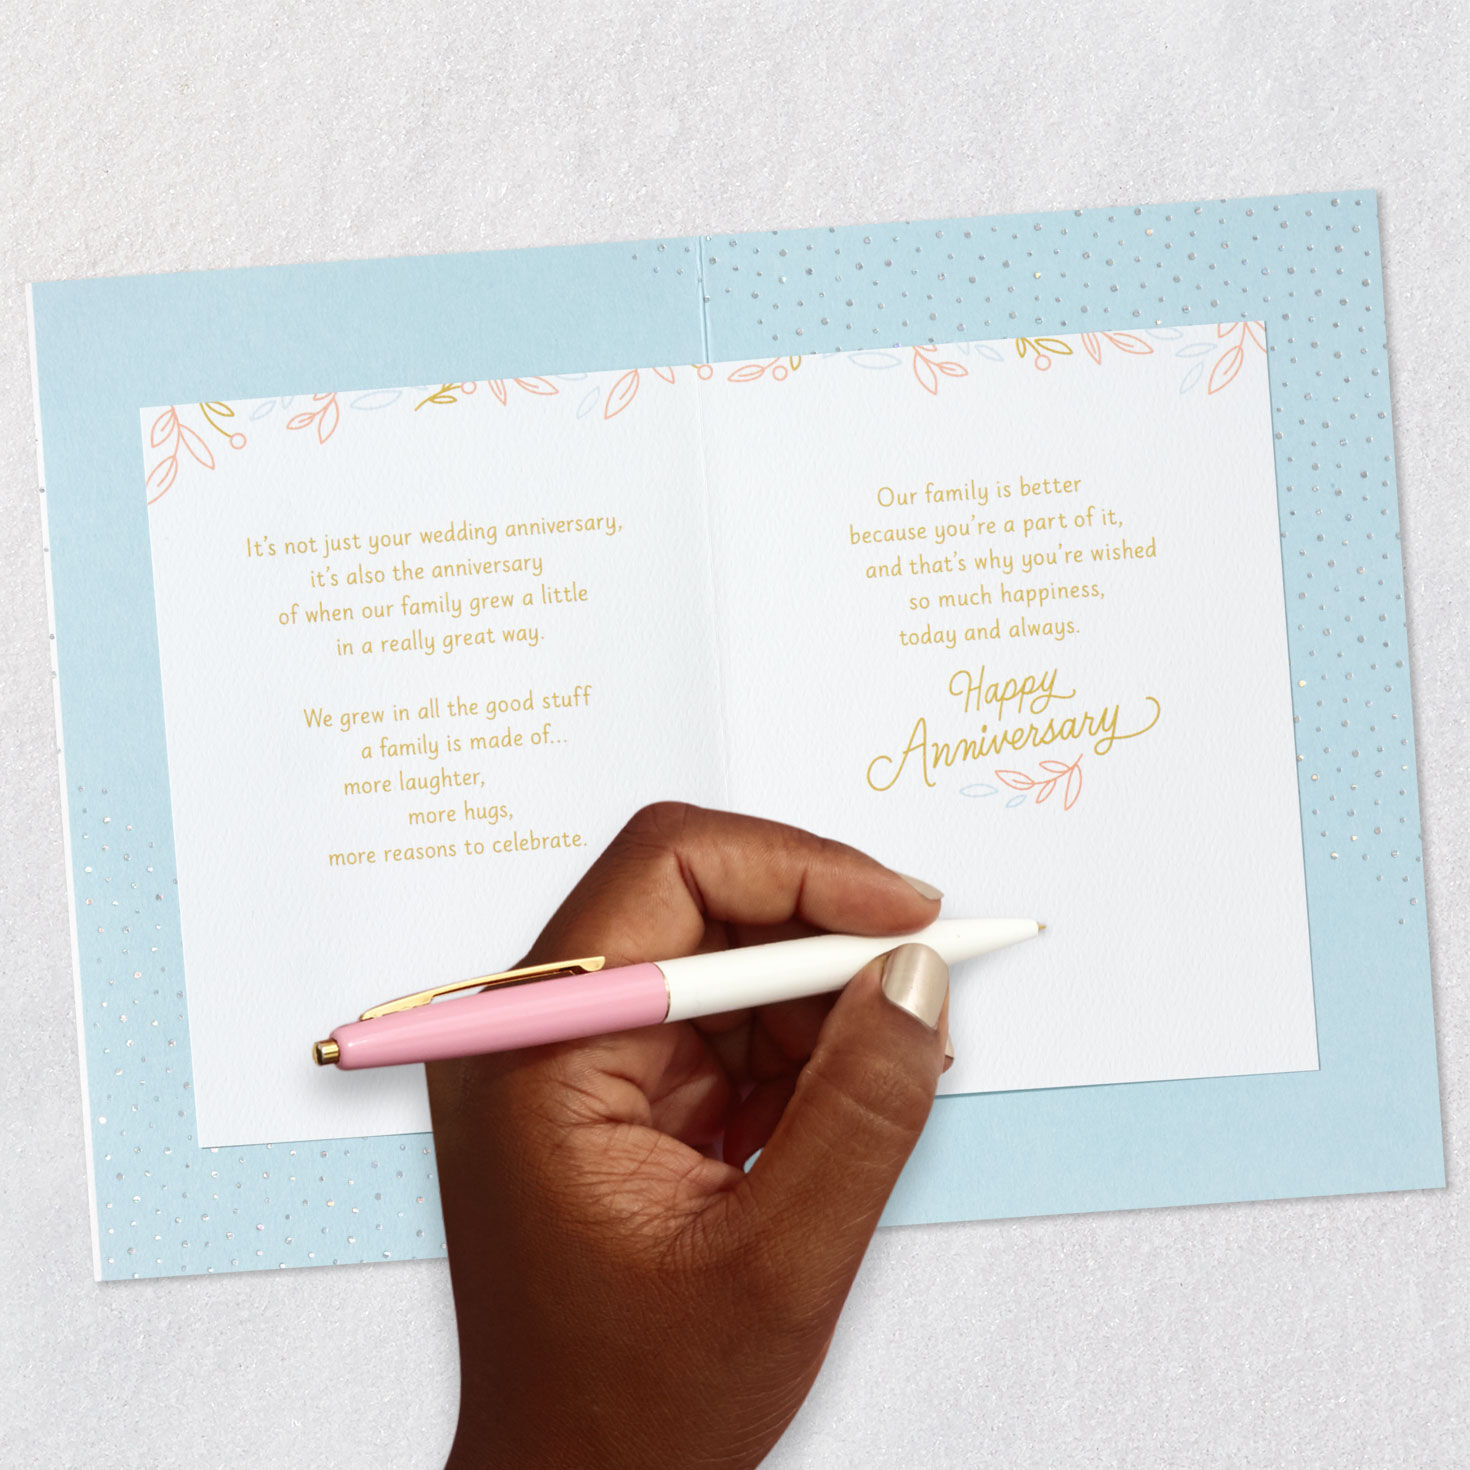 It's not just your wedding anniversary,
it's also the anniversary
of when our family grew a little
in a really great way.
We grew in all the good stuff
a family is made of...
more laughter,
more hugs,
more reasons to celebrate.
Our family is better
because you're a part of it,
and that's why you're wished
so much happiness,
today and always.
Happy
Anniversary